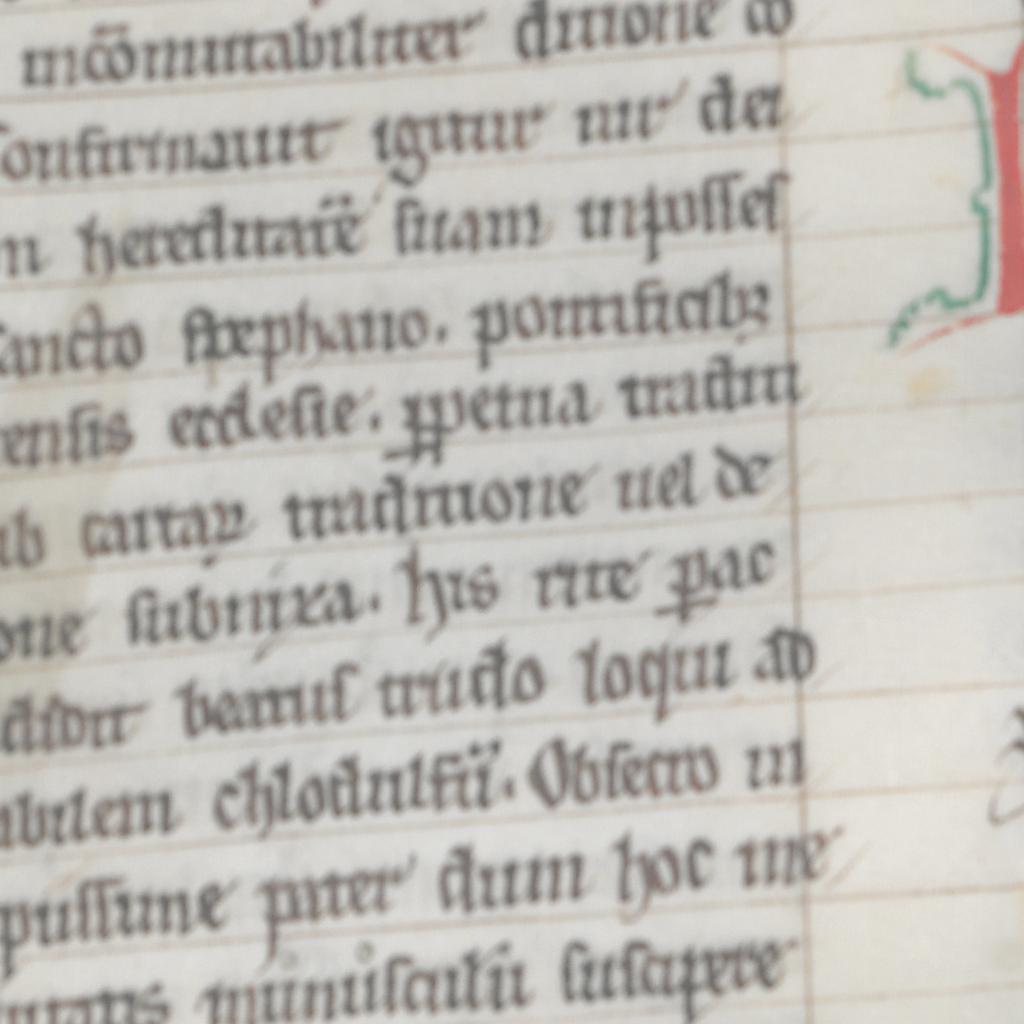 incōmutabiliter ditione co
onfirmauit igitur uir dei
n hereditatē suam inposses
ancto stephano. pontificibꝫ
ensis ecclesie. ꝑpetua traditi
ab cartaꝝ traditione uel de
one subnixa. his rite ꝑac
didit beatus trudo loqui ad
abilem chlodulfū. Obsecro in
piissime pater dum hoc me
munusculū suscipere